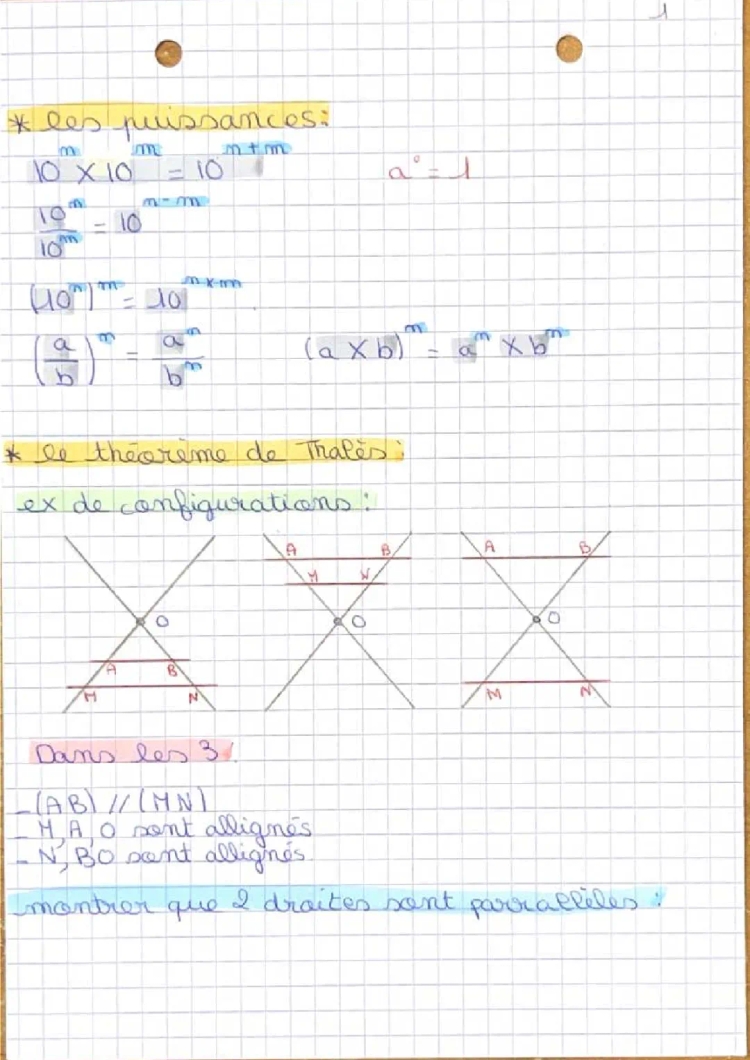 1
* les puissances:
10ⁿ × 10ᵐ = 10ⁿ⁺ᵐ a° = 1
10ⁿ/10ᵐ = 10ⁿ⁻ᵐ
(10ⁿ)ᵐ = 10ⁿˣᵐ
(a/b)ⁿ = aⁿ/bⁿ (a × b)ⁿ = aⁿ × bⁿ
* le théorème de Thalès:
ex de configurations:
A B A B
M N
O O O
A B
M N M N
Dans les 3:
- (AB) // (MN)
- M, A, O sont allignés
- N, B O sont allignés
montrer que 2 droites sont parrallèles :